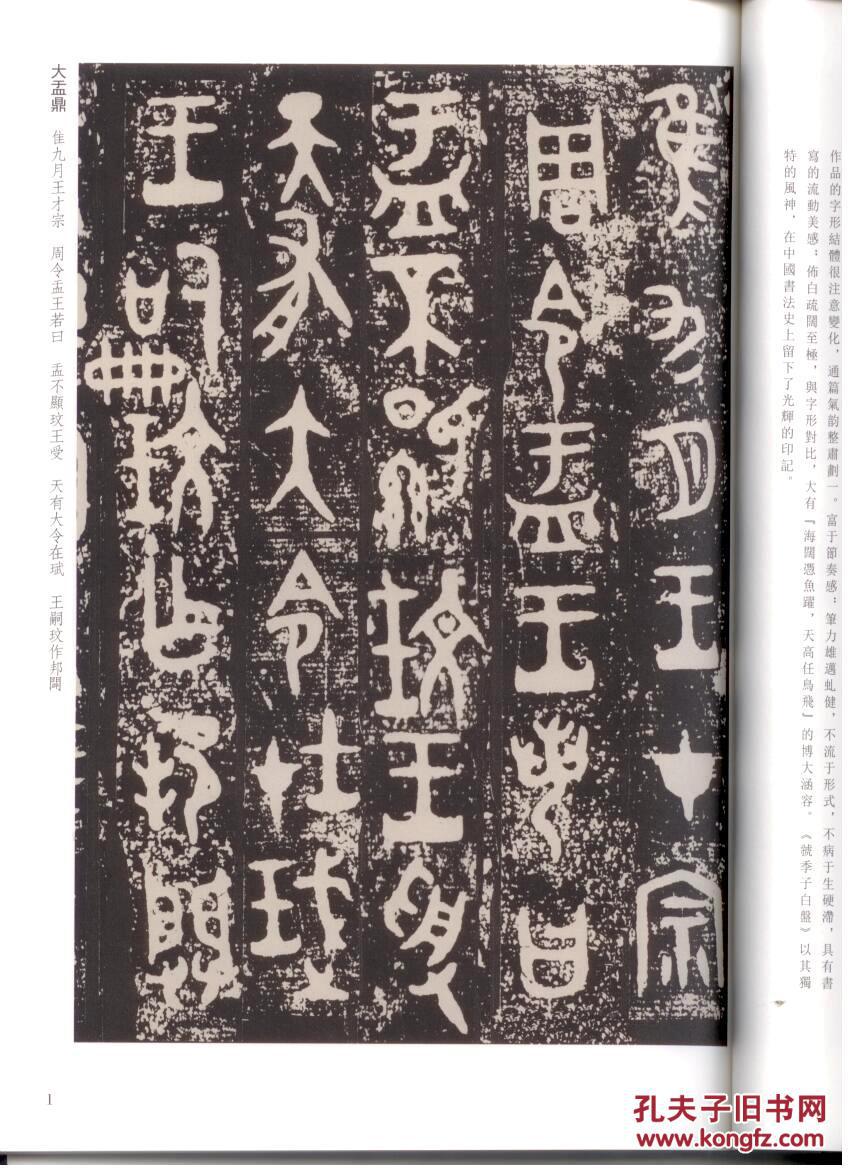 作品的字形結體很注意變化，通篇氣韵整肅劃一。富于節奏感；筆力雄邁虬健，不流于形式，不病于生硬滯，具有書
寫的流動美感；佈白疏闊至極，與字形對比，大有『海闊憑魚躍，天高任鳥飛』的博大涵容。《虢季子白盤》以其獨
特的風神，在中國書法史上留下了光輝的印記。
隹九月王才宗
周令盂王若曰
盂不顯玟王受
天有大令在珷
王嗣玟作邦闢
大盂鼎 隹九月王才宗 周令盂王若曰 盂不顯玟王受 天有大令在珷 王嗣玟作邦閈
1
孔夫子旧书网
www.kongfz.com